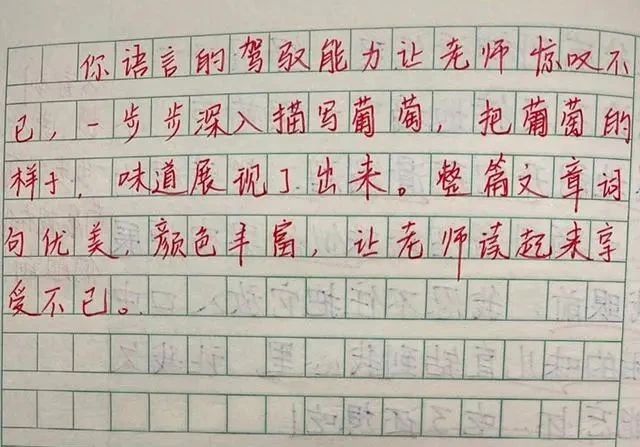 你语言的驾驭能力让老师惊叹不
已，一步步深入描写葡萄，把葡萄的
样子，味道展现了出来。整篇文章词
句优美，颜色丰富，让老师读起来享
受不已。